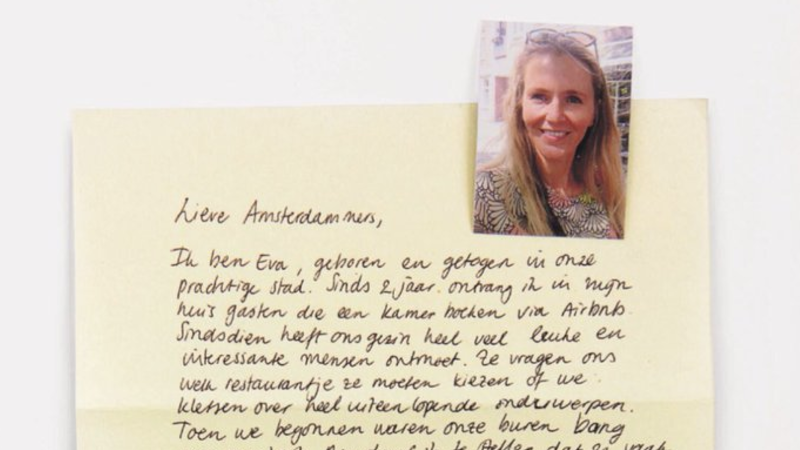 Lieve Amsterdammers,
Ik ben Eva, geboren en getogen in onze
prachtige stad. Sinds 2 jaar ontvang ik in mijn
huis gasten die een kamer boeken via Airbnb.
Sindsdien heeft ons gezin heel veel leuke en
interessante mensen ontmoet. Ze vragen ons
welk restaurantje ze moeten kiezen of we
kletsen over heel uiteenlopende onderwerpen.
Toen we begonnen waren onze buren bang
te stellen dat ze vaak